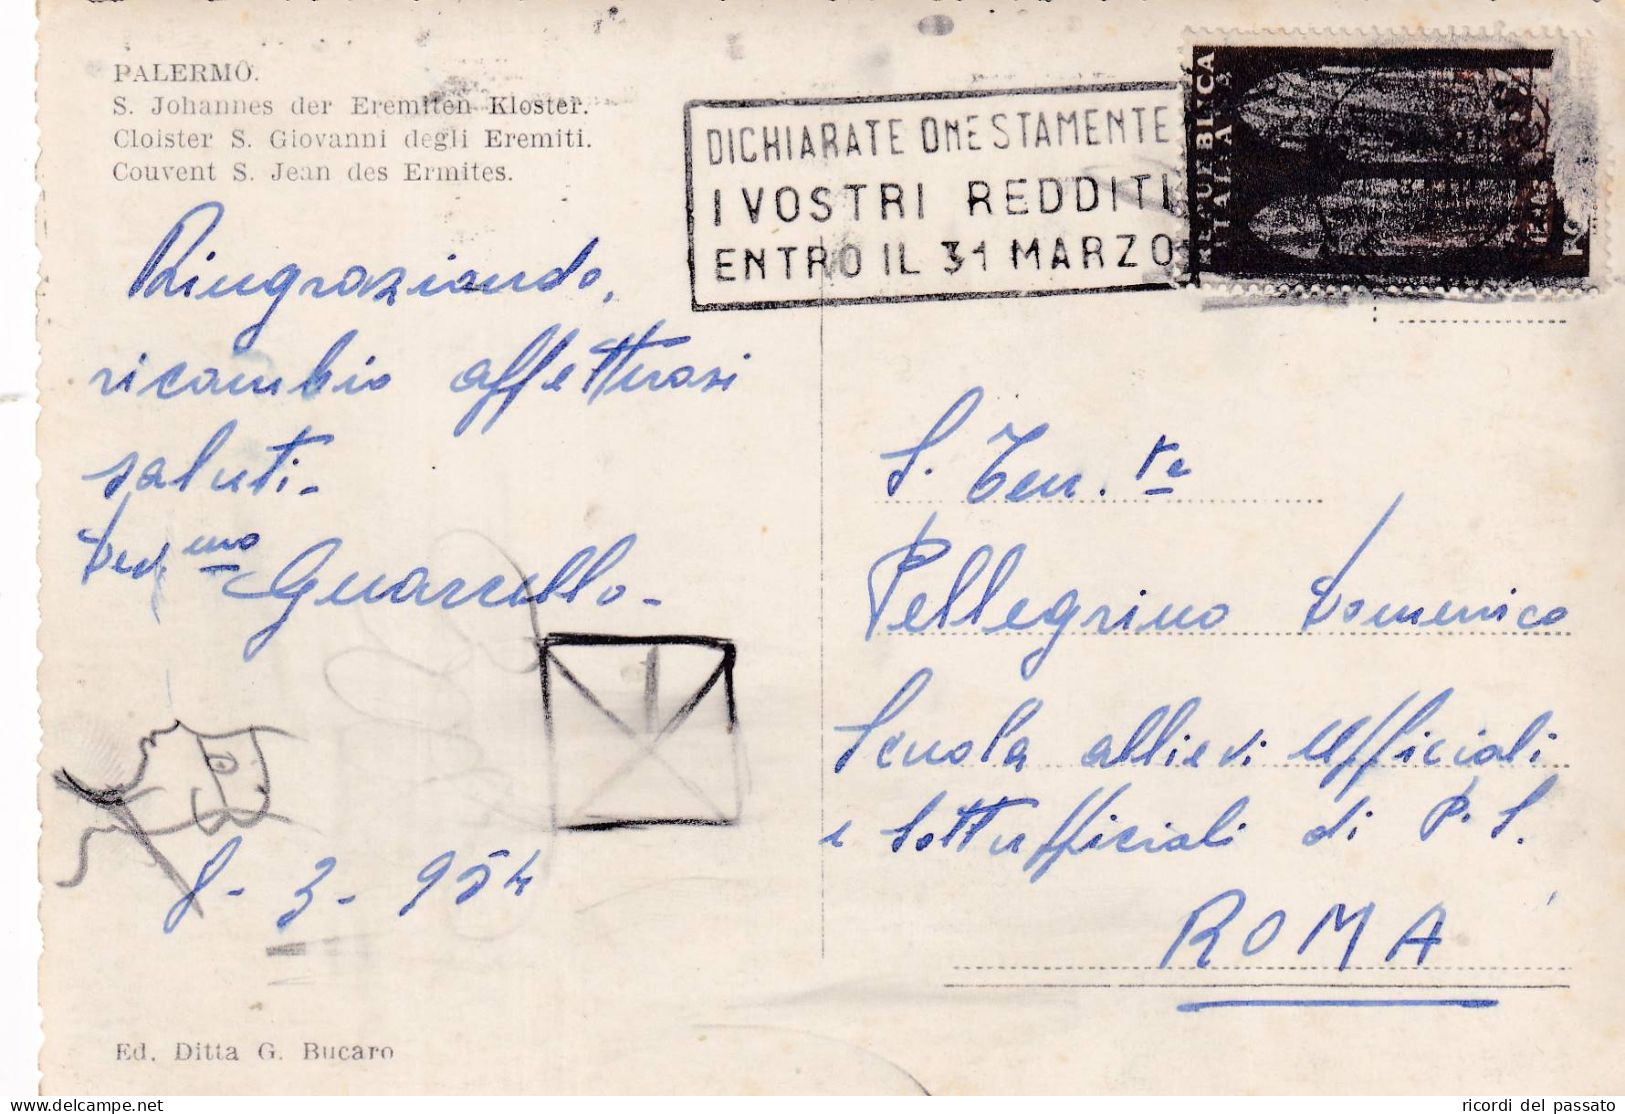 PALERMO.
S. Johannes der Eremiten Kloster.
Cloister S. Giovanni degli Eremiti.
Couvent S. Jean des Ermites.
DICHIARATE ONESTAMENTE
I VOSTRI REDDITI
ENTRO IL 31 MARZO
REPUBBLICA
ITALIANA
Ringraziando,
ricambio affettuosi
saluti.
Dev.mo Guarcello.
8-3-954
S. Ten.te
Pellegrino Domenico
Scuola allievi Ufficiali
e Sottufficiali di P.S.
ROMA
Ed. Ditta G. Bucaro
delcampe.net
ricordi del passato